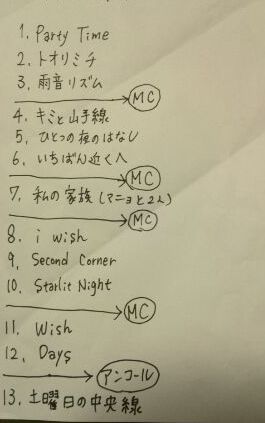 1. Party Time
2. トオリミチ
3. 雨音リズム
MC
4. キミと山手線
5. ひとつの夜のはなし
6. いちばん近くへ
MC
7. 私の家族(マニョと2人)
MC
8. i wish
9. Second Corner
10. Starlit Night
MC
11. Wish
12. Days
アンコール
13. 土曜日の中央線